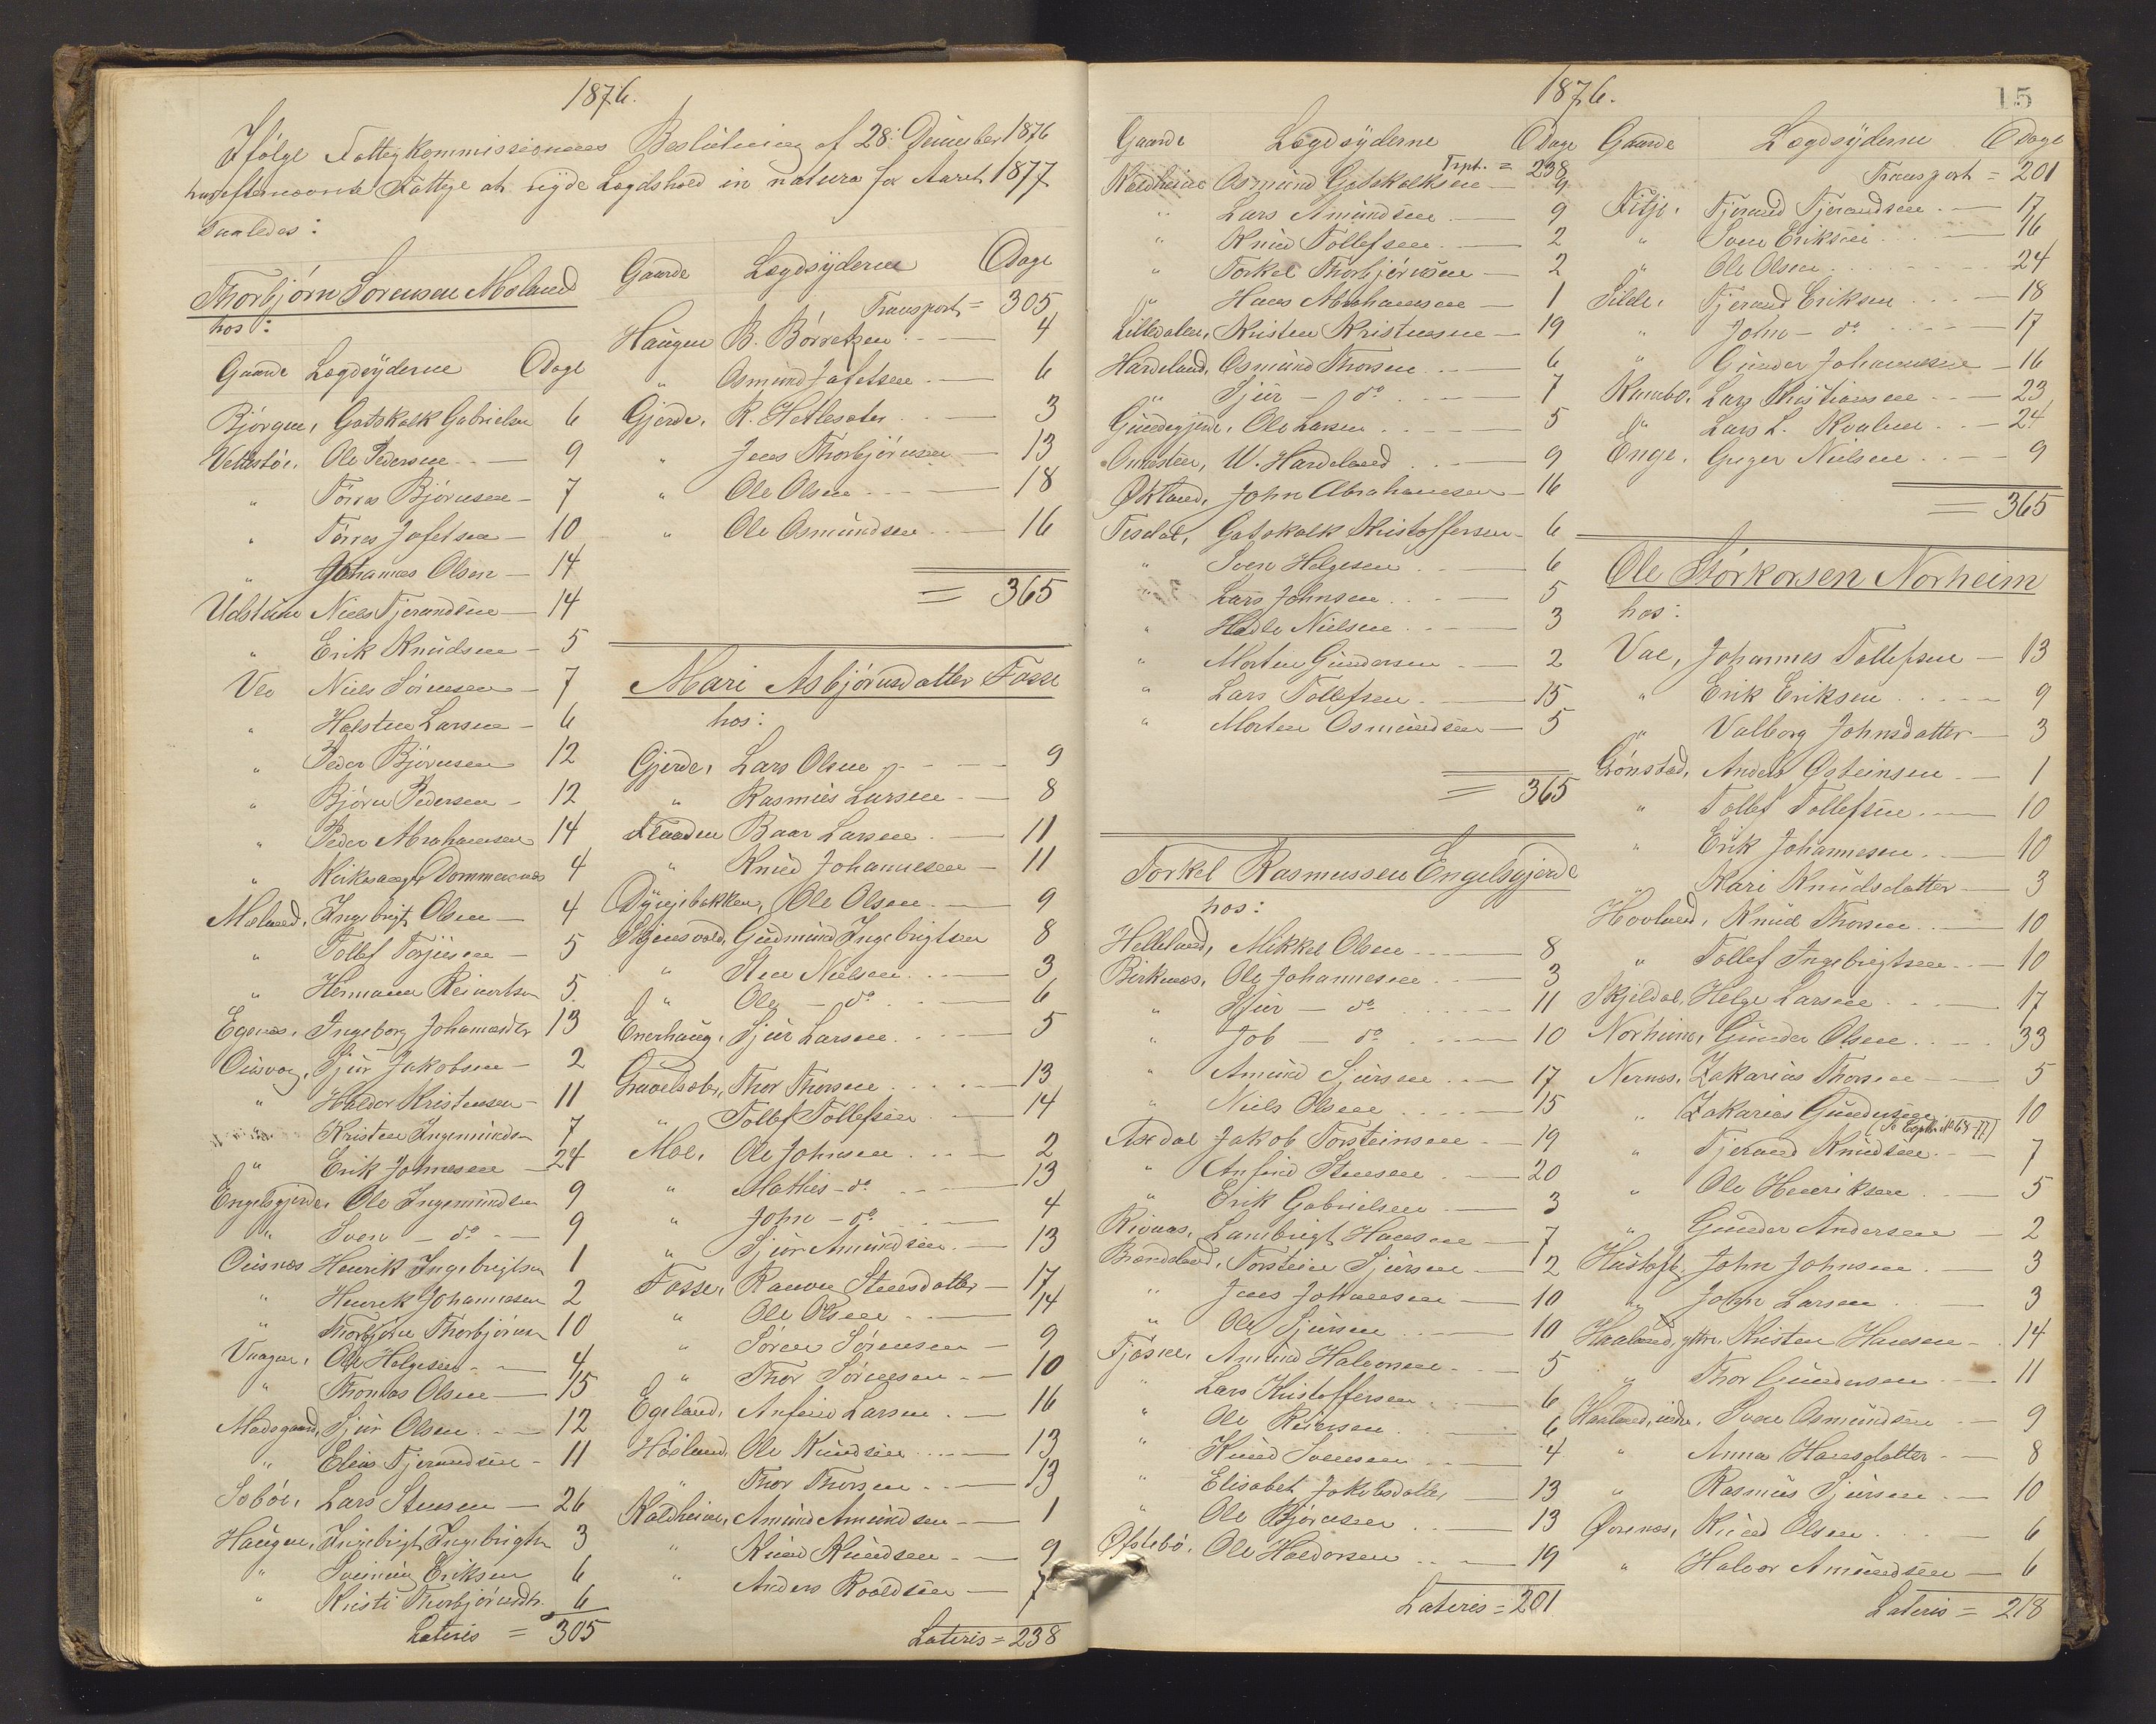 1876.
Ifölge Fattigkommissionens Beslutning af 28. December 1876
har efternævnte Fattige at nyde Lægdshold in natura for Aaret 1877
saaledes:
Thorbjörn Sörensen Moland
hos:
Gaarde Lægdsyderne Dage
Bjørgen, Gotskalk Gabrielsen 6
Vettestøe, Ole Pedersen 9
" Tørres Bjørnsen 7
" Tørres Jafetsen 10
" Johannes Olsen 14
Udstein Niels Tjerandsen 14
" Erik Knudsen 5
Veo Niels Sörensen 7
" Holsten Larsen 6
" Peder Bjørnsen 12
" Bjørn Pedersen 12
" Peder Abrahamsen 14
" Dommersnes 4
Moland, Ingebrigt Olsen 4
" Tollef Torjusen 5
" Hermann Reinertsen 5
Egenes, Ingeborg Johannesdtr 13
Ousvog, Sjur Jakobsen 2
" Haldor Kristensen 11
Kristen Ingemundsen 7
" Erik Johnesen 24
Engelsgjerde, Ole Ingemundsen 9
" Sven - do 9
Ousnes Henrik Ingebrigtsen 1
" Henrik Johannesen 2
" Thorbjörn Thorbjörnsen 10
Vaagen, Ole Helgesen 4
" Thomas Olsen 15
Madsgaard, Sjur Olsen 12
" Elias Tjerandsen 11
Søbøe, Lars Stensen 26
Haugen, Ingebrigt Ingebrigtsen 3
" Sveinung Eriksen 6
" Kristi Thorbjörnsdtr. 6
Lateris = 305
Gaarde Lægdsyderne Dage
Transport = 305
Haugen B. Börretzen 4
" Osmund Jafetsen 6
Gjerde, R. Hetlesæter 3
" Jens Thorbjörnsen 13
" Ole Olsen 18
" Ole Osmundsen 16
= 365
Mari Asbjörnsdatter Fosse
hos:
Gjerde, Lars Olsen 9
" Rasmus Larsen 8
Flaaden Baar Larsen 11
" Knud Johannesen 11
Dyngjebakken, Ole Olsen 9
Stjensvold, Gudmund Ingebrigtsen 8
" Sten Nielsen 3
" Ole - do 6
Enerhaug, Sjur Larsen 5
Gravelsæter, Thor Thorsen 13
" Tollef Tollefsen 14
Moe, Ole Johnsen 2
" Mathis - do 13
" John - do 4
" Sjur Amundsen 13
Fosse, Ranvei Stensdatter 17
" Ole Olsen 14
" Sören Sörensen 9
" Thor Sörensen 10
Egeland, Anfind Larsen 16
Høiland, Ole Knudsen 13
" Thor Thorsen 13
Koldheim, Amund Amundsen 1
" Knud Knudsen 9
" Anders Roaldsen 7
Lateris = 238
1876. 15
Gaarde Lægdsyderne Dage
Trpt. = 238
Koldheim Osmund Gotskalksen 9
" Lars Amundsen 9
" Knud Tollefsen 2
" Torkel Thorbjörnsen 2
" Hans Abrahamsen 1
Lilledalen, Kristen Kristensen 19
Hardeland, Osmund Thorsen 6
" Sjur - do 7
Gundegjerde, Ole Larsen 5
Omresten, W. Hardeland 9
Økland, John Abrahamsen 16
Tesdal, Gotskalk Kristoffersen 6
" Sven Helgesen 6
" Lars Johnsen 5
" Hadle Nielsen 3
" Morten Gundersen 2
" Lars Tollefsen 15
" Morten Osmundsen 5
= 365
Torkel Rasmussen Engelsgjerde
hos:
Helleland, Mikkel Olsen 8
Birkenes, Ole Johannesen 3
" Sjur - do 11
" Job - do 10
" Amund Sjursen 17
" Niels Olsen 15
Axdal Jakob Torsteinsen 19
" Anfind Stensen 20
" Erik Gabrielsen 3
Rivenes, Lambrigt Hansen 7
Brændeland, Torstein Sjursen 2
" Jens Johannesen 10
" Ole Sjursen 10
Fjøsne, Amund Halvorsen 5
" Lars Kristoffersen 6
" Ole Pedersen 6
" Knud Svensen 4
" Elisabet Jakobsdatter 13
" Ole Björnsen 13
Østebø, Ole Haldorsen 19
Lateris = 201
Gaarde Lægdsyderne Dage
Transport = 201
Fitje, Tjerand Tjerandsen 17
" Sven Eriksen 16
" Ole Olsen 24
Silde, Tjerand Eriksen 18
" John - do 17
" Gunder Johannesen 16
Rambo, Lars Kristiansen 23
" Lars L. Kvalen 24
Enge, Guger Nielsen 9
= 365
Ole Störkorsen Norheim
hos:
Vae, Johannes Tollefsen 13
" Erik Eriksen 9
" Valborg Johnsdatter 3
Grönstad, Anders Østeinsen 1
" Tollef Tollefsen 10
" Erik Johannesen 10
" Kari Knudsdatter 3
Hovland, Knud Thorsen 10
" Tollef Ingebrigtsen 10
Skjeldal, Helge Larsen 17
Norheim, Gunder Olsen 33
Nernes, Zakarias Thorsen 5
" Zakarias Gundersen 10
(Se Copib. No 68-77)
" Tjerand Knudsen 7
" Ole Henriksen 5
" Gunder Andersen 2
Hustoft, John Johnsen 3
" John Larsen 3
Haaland, ytre, Kristen Hansen 14
" Thor Gundersen 11
Haaland, indre, Sven Osmundsen 9
" Anna Hansdatter 8
" Rasmus Sjursen 10
Ørenes, Knud Olsen 6
" Halvor Amundsen 6
Lateris = 218